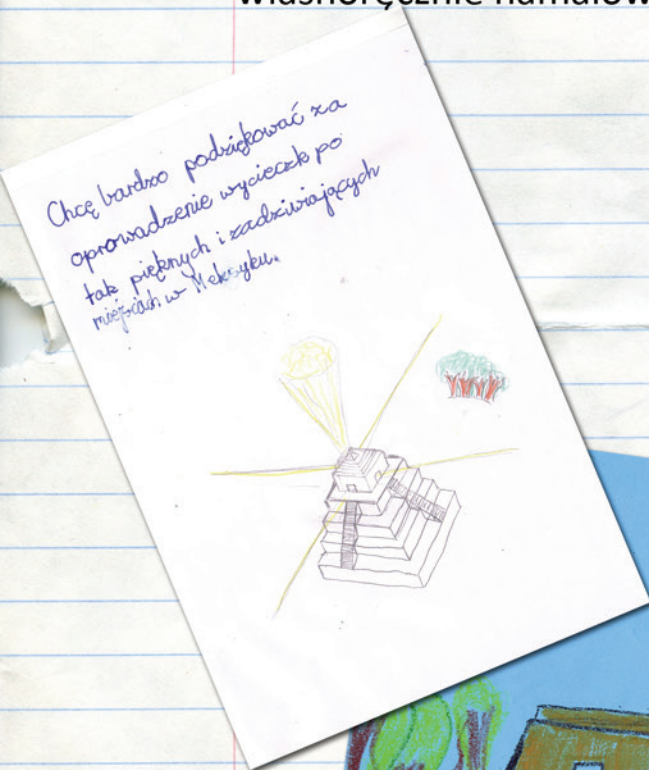 własnoręcznie namalow
Chcę bardzo podziękować za
oprowadzenie wycieczk po
tak pięknych i zadziwiających
miejscach w Meksyku.